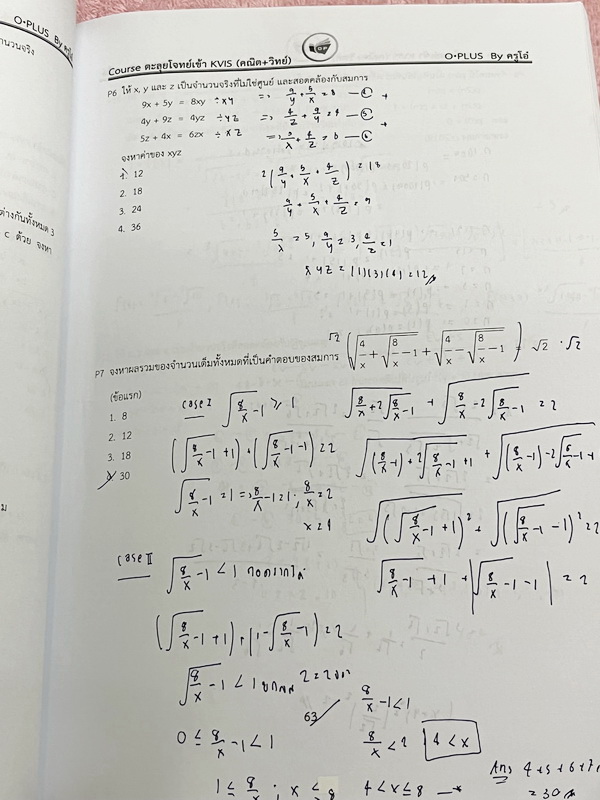 Course ตะลุยโจทย์เข้า KVIS (คณิต+วิทย์)
O•PLUS By ครูโอ๋
P6 ให้ x, y และ z เป็นจำนวนจริงที่ไม่ใช่ศูนย์ และสอดคล้องกับสมการ
9x + 5y = 8xy ÷xy => 9/y + 5/x = 8
4y + 9z = 4yz ÷yz => 4/z + 9/y = 4
5z + 4x = 6zx ÷xz => 5/x + 4/z = 6
จงหาค่าของ xyz
1. 12
2. 18
3. 24
4. 36
2(9/y + 5/x + 4/z) = 18
9/y + 5/x + 4/z = 9
5/x = 5, 9/y = 3, 4/z = 1
xyz = (1)(3)(4) = 12
P7 จงหาผลรวมของจำนวนเต็มทั้งหมดที่เป็นคำตอบของสมการ √2 (√(4/x + √(8/x - 1)) + √(4/x - √(8/x - 1))) = √2 · √2
(ข้อแรก)
1. 8
2. 12
3. 18
4. 30
case I √(8/x - 1) ≥ 1
√(8/x + 2√(8/x - 1)) + √(8/x - 2√(8/x - 1)) = 2
(√(8/x - 1) + 1) + (√(8/x - 1) - 1) = 2
√((8/x - 1) + 2√(8/x - 1) + 1) + √((8/x - 1) - 2√(8/x - 1) + 1
√(8/x - 1) = 1 => 8/x - 1 = 1; 8/x = 2
x = 4
√((√(8/x - 1) + 1)²) + √((√(8/x - 1) - 1)²) = 2
case II √(8/x - 1) < 1
√(8/x - 1) + 1 + |√(8/x - 1) - 1| = 2
(√(8/x - 1) + 1) + (1 - √(8/x - 1)) = 2
√(8/x - 1) < 1 2 = 2
8/x - 1 < 1
63
0 ≤ 8/x - 1 < 1
8/x < 2 4 < x
1 ≤ 8/x ; x ≤ 8 4 < x ≤ 8
Ans 4+5+6+7+
= 30